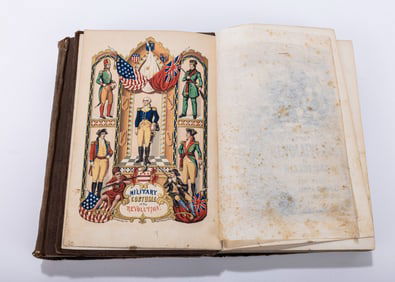 THE
MILITARY
COSTUME
of the
REVOLUTION.